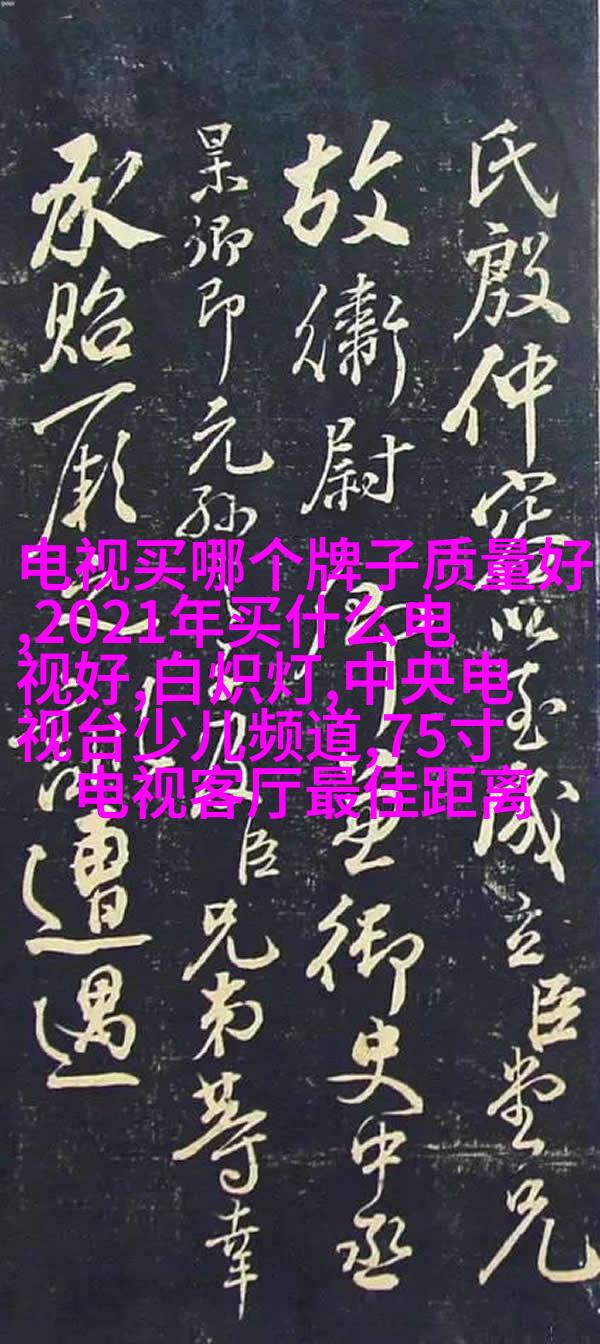 氏殷仲容以至成立臣堂兄
故衛尉卿兼御史中丞
杲卿即元孫及臣兄弟等幸
承貽厥之遭遇
电视买哪个牌子质量好
,2021年买什么电
视好,白炽灯,中央电
视台少儿频道,75寸
电视客厅最佳距离